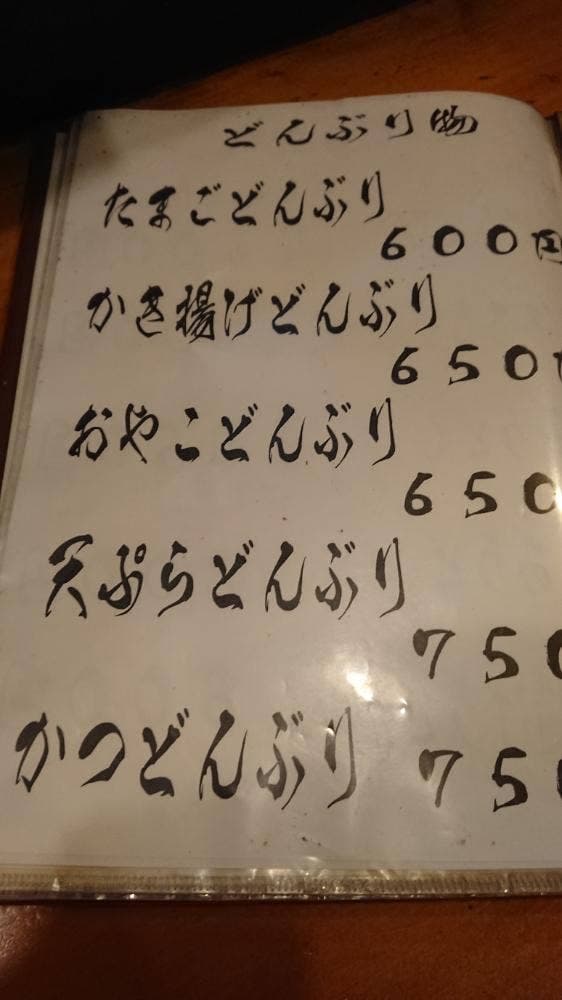 どんぶり物
たまごどんぶり
600円
かき揚げどんぶり
650
おやこどんぶり
650
天ぷらどんぶり
750
かつどんぶり 750